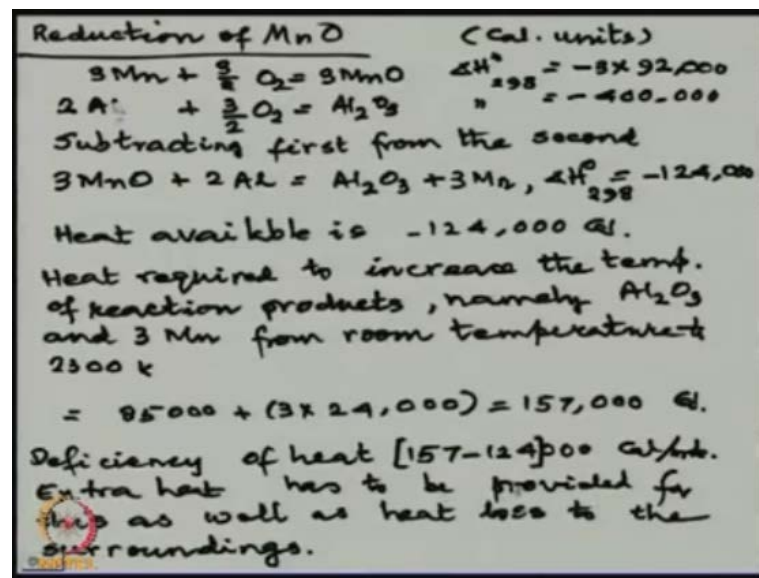 Reduction of MnO (Cal. units)
3Mn + 3/2 O₂ = 3MnO ΔH°₂₉₈ = -3x92,000
2Al + 3/2 O₂ = Al₂O₃ " = -400,000
Subtracting first from the second
3MnO + 2Al = Al₂O₃ + 3Mn, ΔH°₂₉₈ = -124,000
Heat available is -124,000 Cal.
Heat required to increase the temp.
of reaction products, namely Al₂O₃
and 3 Mn from room temperature to
2300 K
= 85000 + (3x24,000) = 157,000 Cal.
Deficiency of heat [157-124]000 Cal/
Extra heat has to be provided for
this as well as heat loss to the
surroundings.